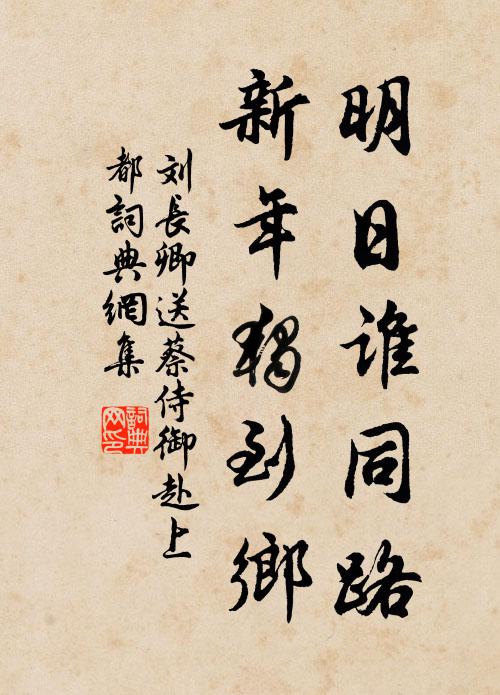 明日谁同路
新年獨到鄉
刘長卿送蔡侍御赴上
都詞典網集
詞典网印